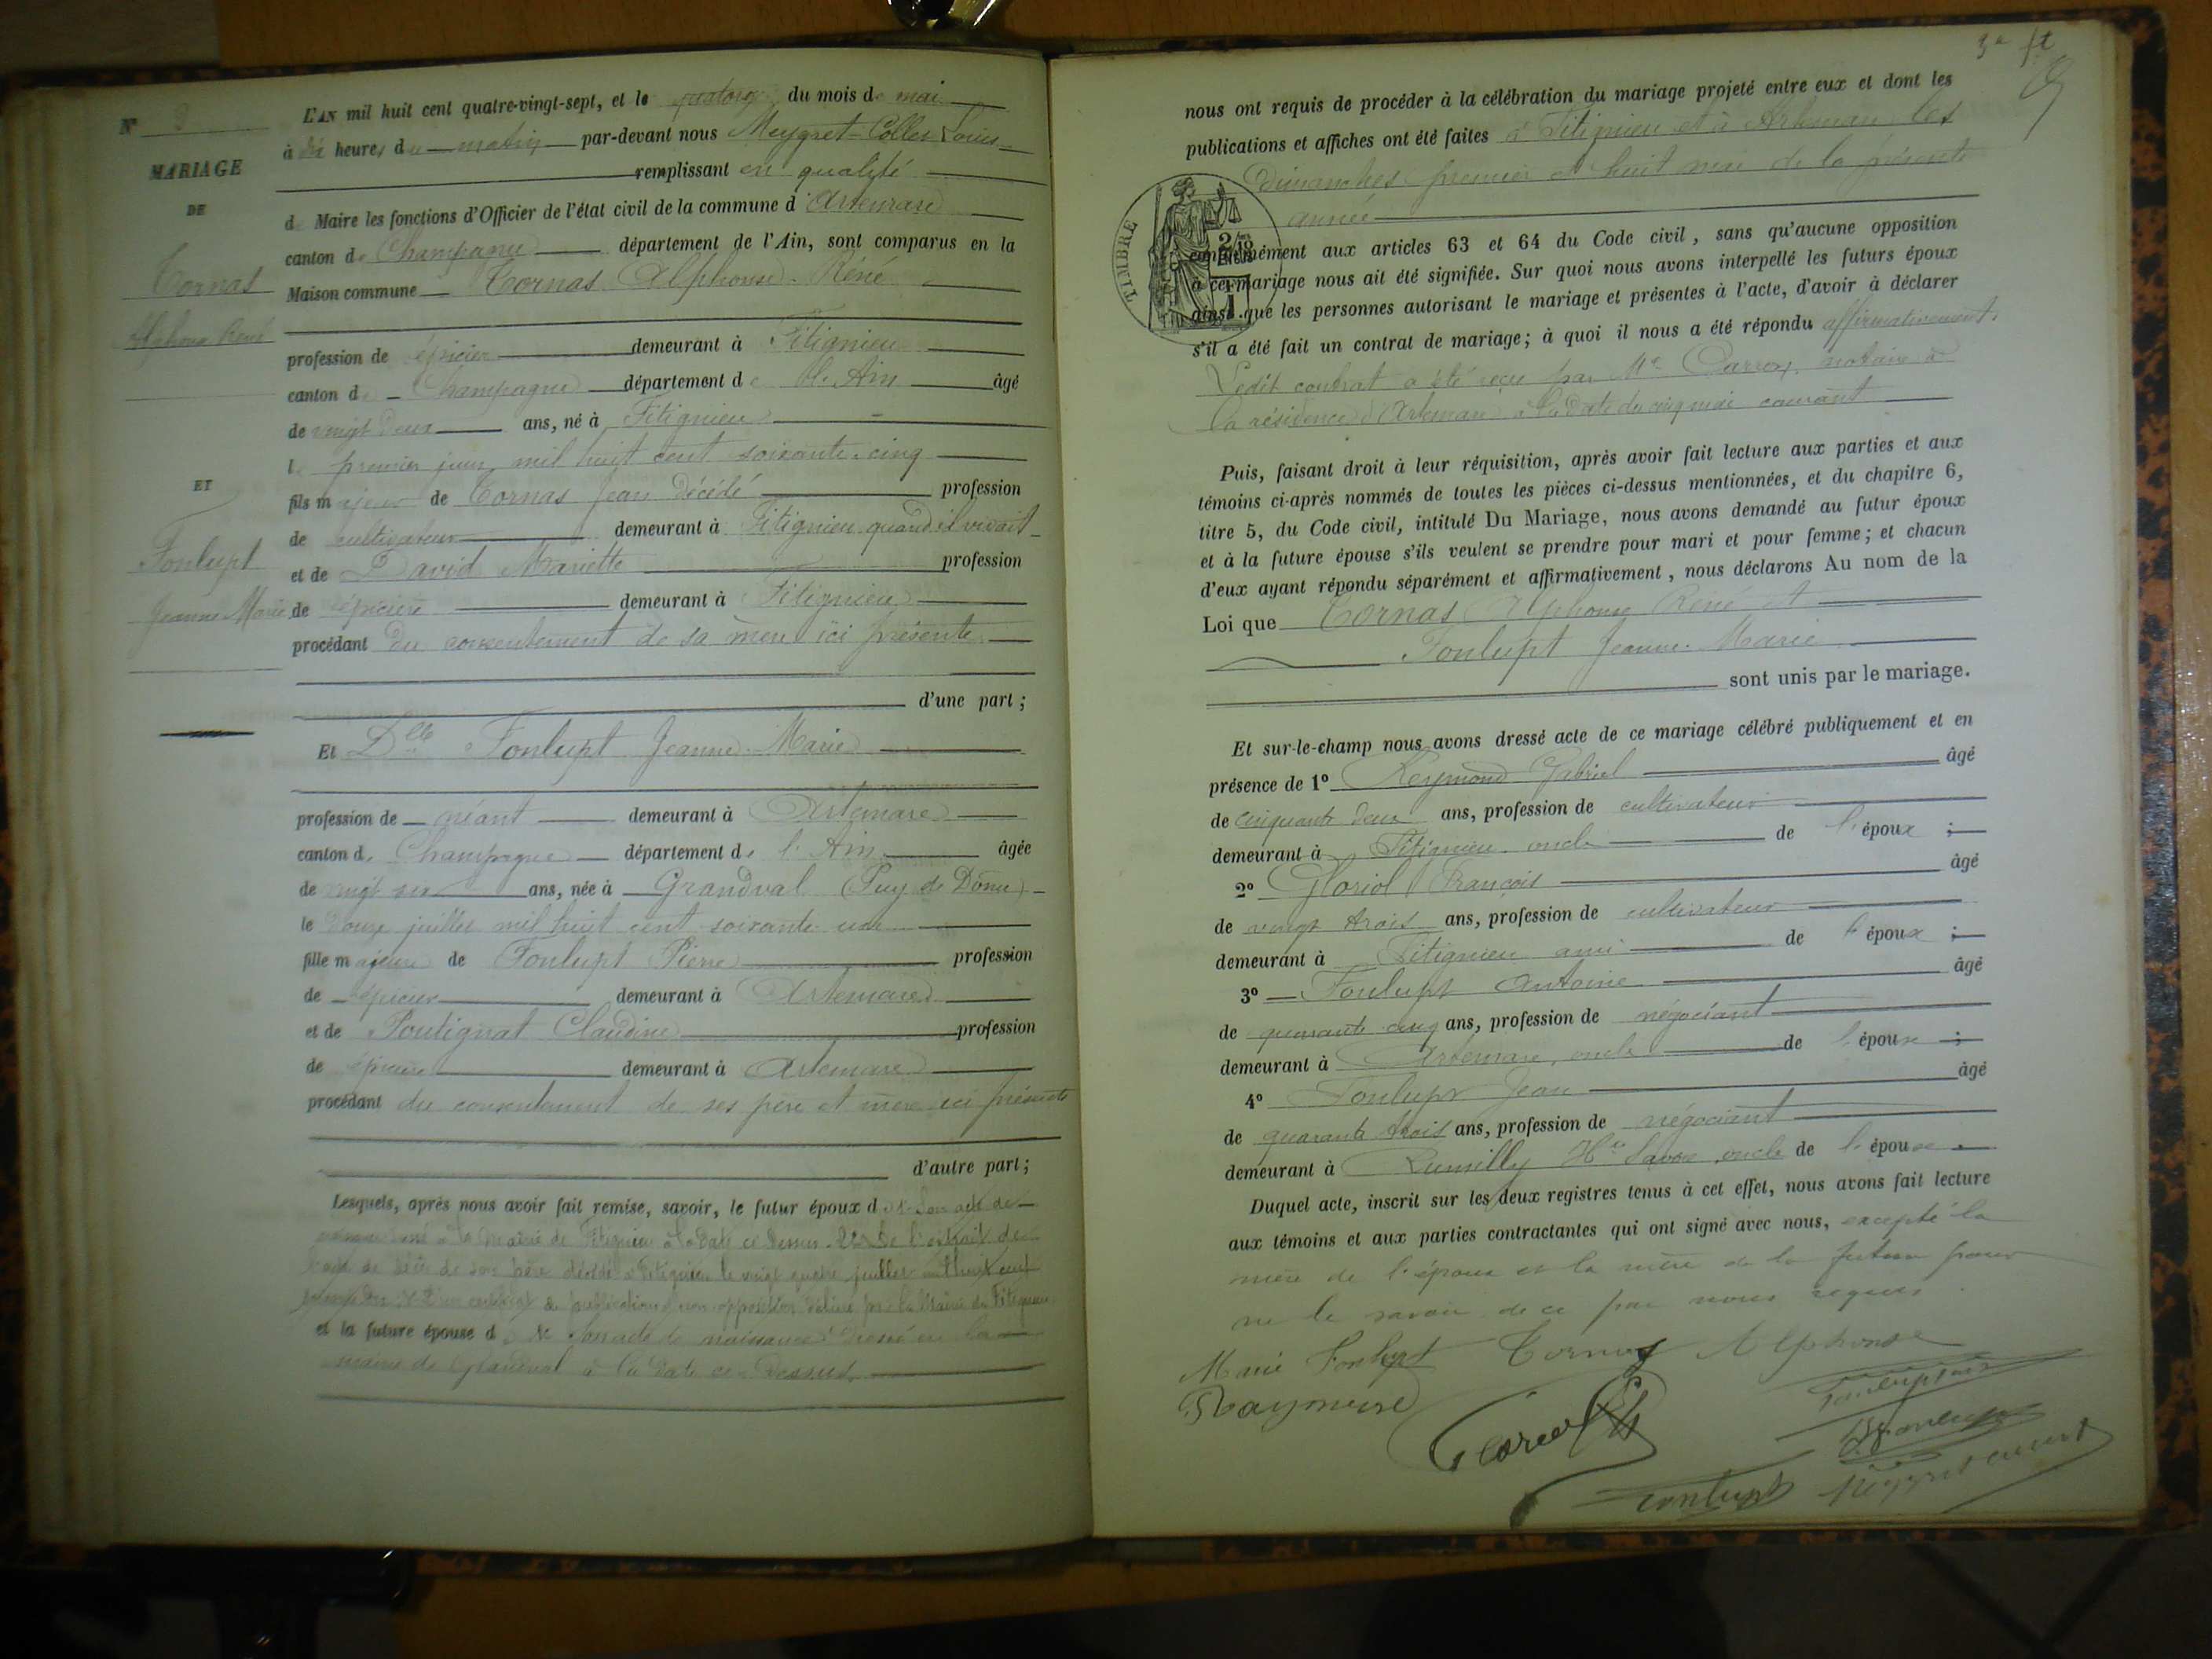 N° 3
MARIAGE
DE
Tornas
Alphonse René
ET
Fonlupt
Jeanne Marie
L'AN mil huit cent quatre-vingt-sept, et le quatorze du mois de mai
à dix heures du matin par-devant nous Meygret-Collet Louis
remplissant en qualité
de Maire les fonctions d'Officier de l'état civil de la commune d'Artemare
canton de Champagne département de l'Ain, sont comparus en la
Maison commune Tornas Alphonse René
profession de épicier demeurant à Fitignieu
canton de Champagne département de l'Ain âgé
de vingt deux ans, né à Fitignieu
le premier juin mil huit cent soixante-cinq
fils majeur de Tornas Jean décédé profession
de cultivateur demeurant à Fitignieu quand il vivait
et de David Mariette profession
de épicière demeurant à Fitignieu
procédant du consentement de sa mère ici présente
d'une part ;
Et Dlle Fonlupt Jeanne Marie
profession de néant demeurant à Artemare
canton de Champagne département de l'Ain âgée
de vingt six ans, née à Grandval (Puy de Dôme)
le douze juillet mil huit cent soixante un
fille majeure de Fonlupt Pierre profession
de épicier demeurant à Artemare
et de Poutignat Claudine profession
de épicière demeurant à Artemare
procédant du consentement de ses père et mère ici présents
d'autre part ;
Lesquels, après nous avoir fait remise, savoir, le futur époux de 1° son acte de
à la Mairie de Fitignieu à la date ci dessus. 2° de l'extrait de
l'acte de décès de son père décédé à Fitignieu le vingt quatre juillet mil huit cent
certificat de publication et non opposition délivré par la Mairie de Fitignieu
et la future épouse de 1° son acte de naissance dressé en la
mairie de Grandval à la date ci-dessus.
nous ont requis de procéder à la célébration du mariage projeté entre eux et dont les
publications et affiches ont été faites à Fitignieu et à Artemare les
Dimanches premier et huit mai de la présente
année
TIMBRE
conformément aux articles 63 et 64 du Code civil, sans qu'aucune opposition
à ce mariage nous ait été signifiée. Sur quoi nous avons interpellé les futurs époux
ainsi que les personnes autorisant le mariage et présentes à l'acte, d'avoir à déclarer
s'il a été fait un contrat de mariage ; à quoi il nous a été répondu affirmativement.
Ledit contrat a été reçu par Me notaire à
la résidence d'Artemare à la date du cinq mai courant
Puis, faisant droit à leur réquisition, après avoir fait lecture aux parties et aux
témoins ci-après nommés de toutes les pièces ci-dessus mentionnées, et du chapitre 6,
titre 5, du Code civil, intitulé Du Mariage, nous avons demandé au futur époux
et à la future épouse s'ils veulent se prendre pour mari et pour femme ; et chacun
d'eux ayant répondu séparément et affirmativement, nous déclarons Au nom de la
Loi que Tornas Alphonse René et
Fonlupt Jeanne Marie
sont unis par le mariage.
Et sur-le-champ nous avons dressé acte de ce mariage célébré publiquement et en
présence de 1° Reymond Gabriel âgé
de cinquante deux ans, profession de cultivateur
demeurant à Fitignieu oncle de l'époux ;
2° Gloriol François âgé
de vingt trois ans, profession de cultivateur
demeurant à Fitignieu ami de l'époux ;
3° Fonlupt Antoine âgé
de quarante cinq ans, profession de négociant
demeurant à Artemare, oncle de l'épouse ;
4° Fonlupt Jean âgé
de quarante trois ans, profession de négociant
demeurant à Rumilly Hte Savoie oncle de l'épouse.
Duquel acte, inscrit sur les deux registres tenus à cet effet, nous avons fait lecture
aux témoins et aux parties contractantes qui ont signé avec nous, excepté la
mère de l'époux et la mère de la future pour
ne le savoir de ce par nous requis
Marie Fonlupt Tornas Alphonse
Raymond
Gloriol
Fonlupt